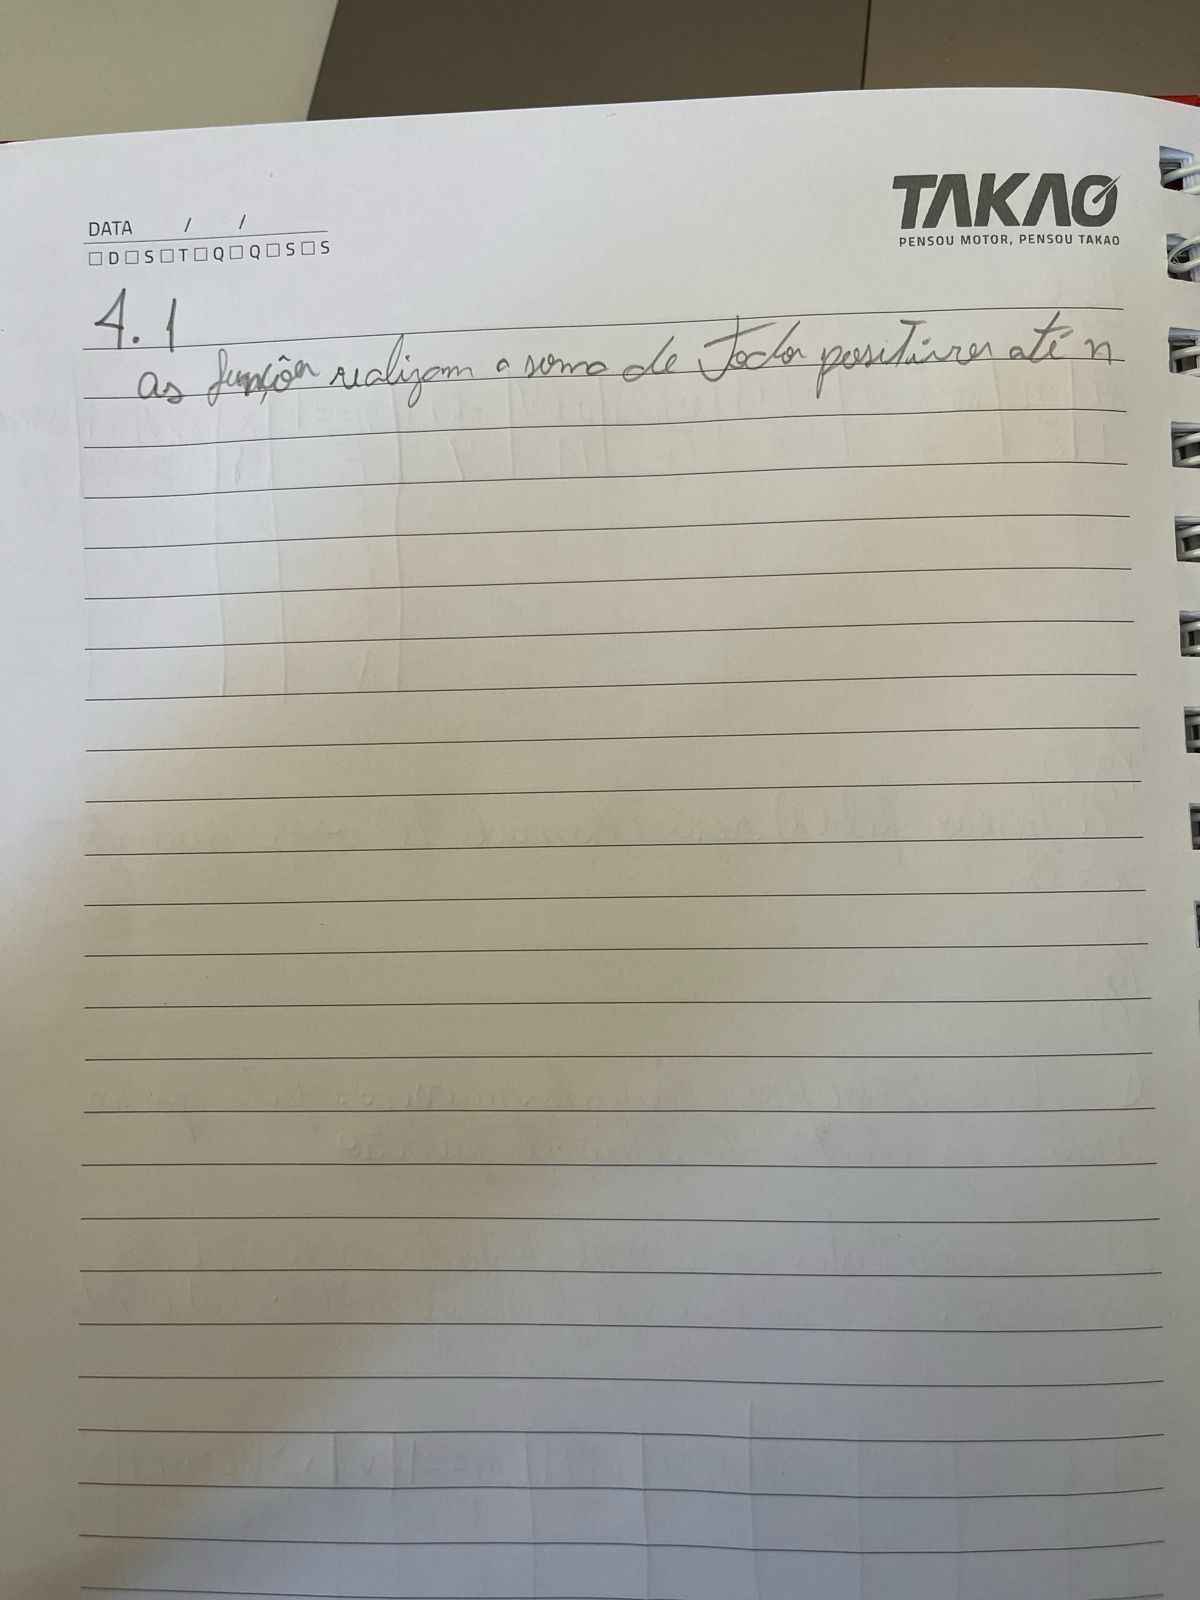 DATA / /
□D□S□T□Q□Q□S□S
TAKAO
PENSOU MOTOR, PENSOU TAKAO
4.1
as funções realizam a soma de todos positivos até n